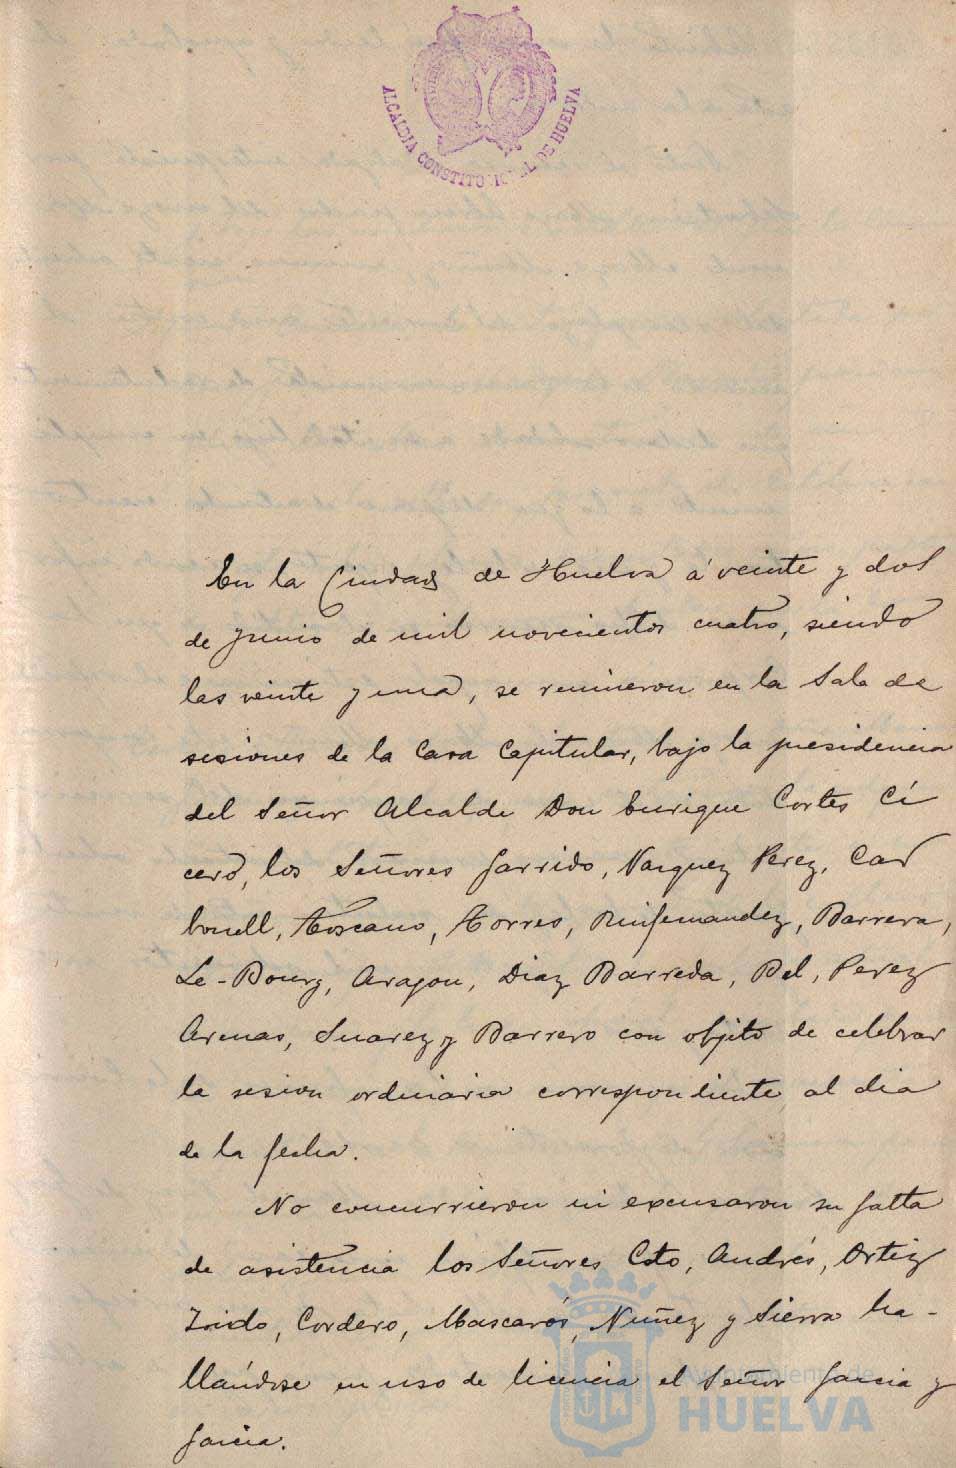 ALCALDIA CONSTITUCIONAL DE HUELVA
En la Ciudad de Huelva á veinte y dos
de Junio de mil novecientos cuatro, siendo
las veinte y una, se reunieron en la Sala de
sesiones de la Casa Capitular, bajo la presidencia
del Señor Alcalde Don Enrique Cortes Cí
cero, los Señores Garrido, Vazquez Perez, Car
bonell, Toscano, Torres, Ruifernandez, Barrera,
Le-Bourg, Aragon, Diaz Barreda, Bel, Perez
Arenas, Suarez y Barrero con objeto de celebrar
la sesion ordinaria correspondiente al dia
de la fecha.
No concurrieron ni excusaron su falta
de asistencia los Señores Coto, Andrés, Ortiz
Toido, Cordero, Mascarós, Nuñez y Sierra ha-
llándose en uso de licencia el Señor Garcia y
Garcia.
Ayuntamiento de
HUELVA